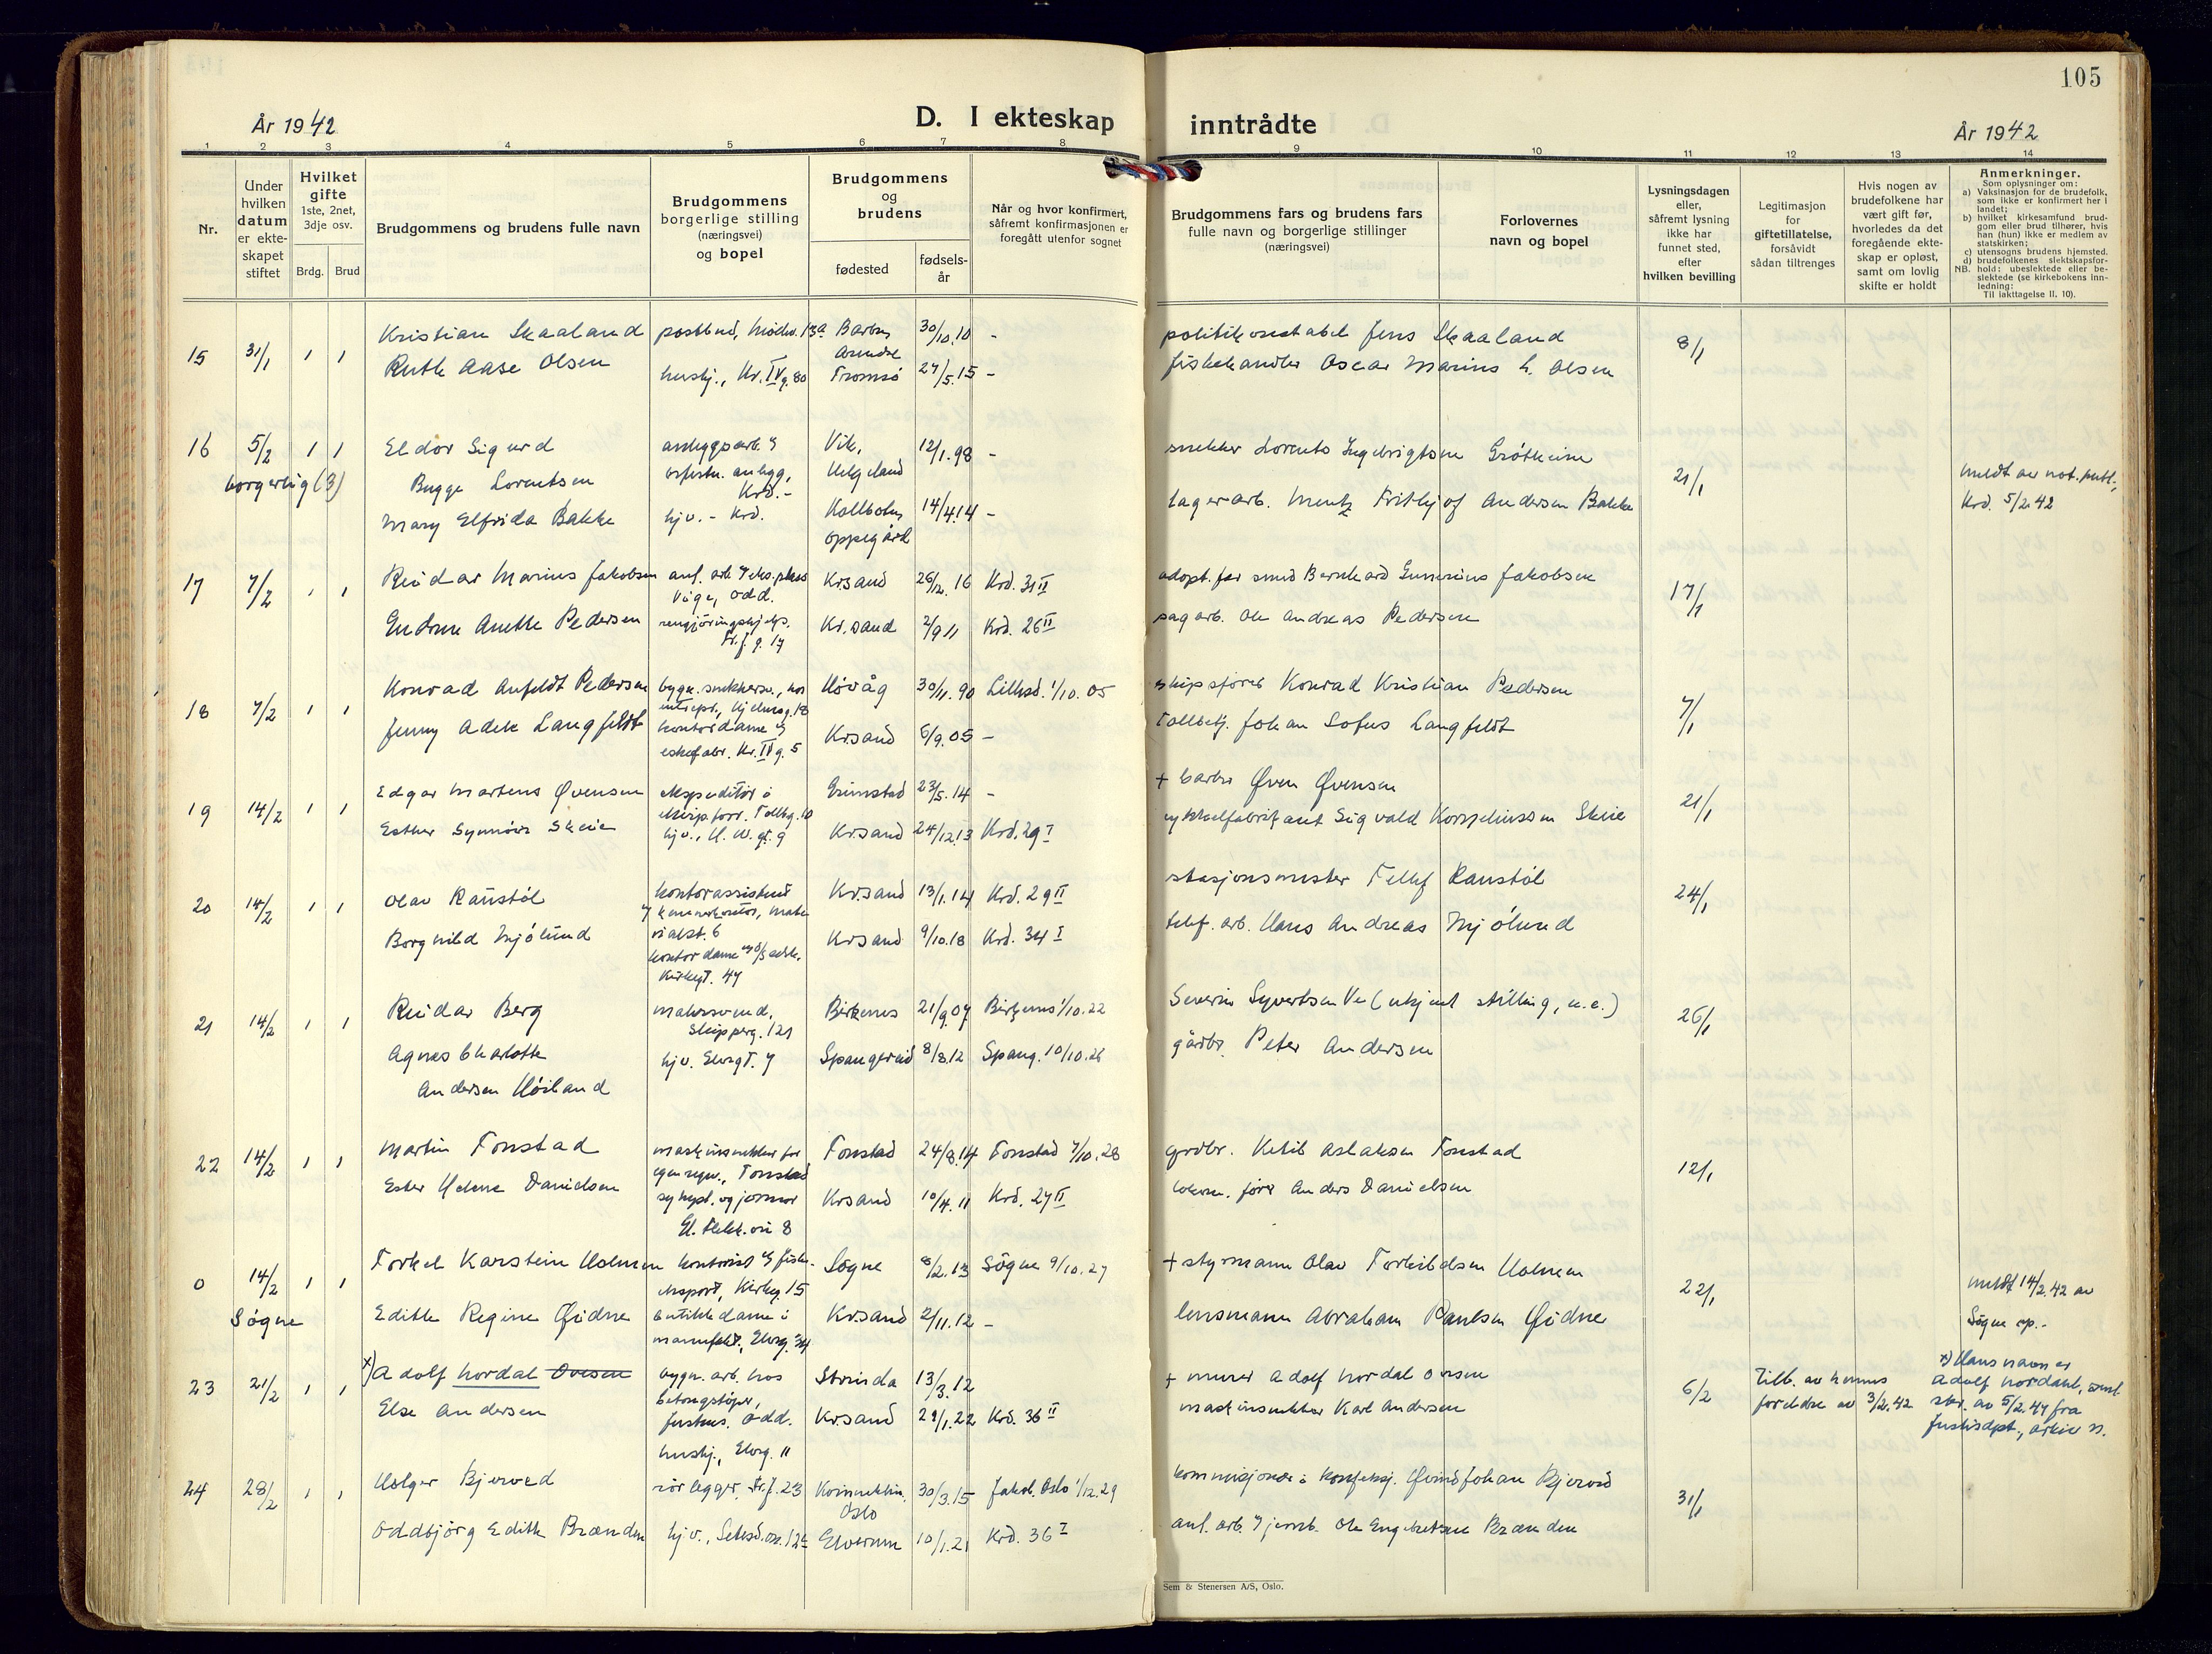 105
År 1942
D. I ekteskap inntrådte
År 1942
1 2 3 4 5 6 7 8 9 10 11 12 13 14
Nr.
Under
hvilken
datum
er ekte-
skapet
stiftet
Hvilket
gifte
1ste, 2net,
3dje osv.
Brdg. Brud
Brudgommens og brudens fulle navn
Brudgommens
borgerlige stilling
(næringsvei)
og bopel
Brudgommens
og
brudens
fødested
fødsels-
år
Når og hvor konfirmert,
såfremt konfirmasjonen er
foregått utenfor sognet
Brudgommens fars og brudens fars
fulle navn og borgerlige stillinger
(næringsvei)
Forlovernes
navn og bopel
Lysningsdagen
eller,
såfremt lysning
ikke har
funnet sted,
efter
hvilken bevilling
Legitimasjon
for
giftetillatelse,
forsåvidt
sådan tiltrenges
Hvis nogen av
brudefolkene har
vært gift før,
hvorledes da det
foregående ekte-
skap er opløst,
samt om lovlig
skifte er holdt
Anmerkninger.
Som oplysninger om:
a) Vaksinasjon for de brudefolk,
som ikke er konfirmert her i
landet;
b) hvilket kirkesamfund brud-
gom eller brud tilhører, hvis
han (hun) ikke er medlem av
statskirken;
c) utensogns brudens hjemsted.
d) brudefolkenes slektskapsfor-
NB. hold: ubeslektede eller be-
slektede (se kirkebokens inn-
ledning:
Til iakttagelse II. 10).
15 31/1 1 1 Kristian Skaaland postbud, 13a Barbu 30/10.10 - politikonstabel Jens Skaaland 8/1
Arendal
Ruth Aase Olsen hushj., Kr. IV g. 80 Tromsö 27/5.15 - fiskehandler Oscar Marius L. Olsen
16 5/2 1 1 Eldor Sigurd anleggsarb. Vik, 12/1.98 - snekker Lorents Ingebrigtsen Grótheim 21/1
borgerlig (3) Bugge Lorentsen anlegg, Helgeland meldt av not. publ.,
Krd. - Krd. 5/2.42
Mary Elfrida Bakke hjv. - Krd. Kolbotn 14/4.14 - lagerarb. Mentz Frithjof Andersen Bakke
Oppegård
17 7/2 1 1 Reidar Marius Jakobsen anl. arb. Krsand 26/12.16 Krd. 31 II adopt. far smed Bernhard Gunerius Jakobsen 17/1
Våge, Odd.
Gudrun Anette Pedersen rengjöringshjelp, Kr.sand 2/9 11 Krd. 26 II sagarb. Ole Andreas Pedersen
Fr. f. g. 17
18 7/2 1 1 Konrad Anfeldt Pedersen bygn. snekkersv., hos Hövåg 30/11.90 Lillesd. 1/10.05 skipsförer Konrad Kristian Pedersen 7/1
entrepr., 18
Jenny Adele Langfeldt kontordame Krsand 6/9.05 - tollbetj. Johan Sofus Langfeldt
eskefabr. Kr. IV g. 5
19 14/2 1 1 Edgar Martens Øvensen ekspeditör i Grimstad 23/5.14 - + barber Øven Øvensen 21/1
forr. Tollbg. 10
Esther Synnöve Skeie hjv., H. W. gt. 9 Krsand 24/12.13 Krd. 29 I sykkelfabrikant Sigvald Korneliussen Skeie
20 14/2 1 1 Olav Raustöl kontorassistent Kr.sand 13/1.14 Krd. 29 II stasjonsmester Tellef Raustöl 24/1
kemnerkontor,
Borghild Mjölund 6 Krsand 9/10.18 Krd. 34 I telef. arb. Hans Andreas Mjölund
kontordame
Kirkegt. 47
21 14/2 1 1 Reidar Berg malersvend, Birkenes 21/9.07 Birkenes 1/10.22 Severin Syvertsen Ve (ukjent stilling, u.e.) 26/1
Skipperg. 121
Agnes Charlotte hjv. Elvegt. 7 Spangereid 8/8.12 Spang. 10/10.26 gårdbr. Peter Andersen
Andersen Höiland
22 14/2 1 1 Martin Tonstad maskinsnekker for Tonstad 24/8.14 Tonstad 7/10.28 grdbr. Ketil Aslaksen Tonstad 12/1
egen regn., Tonstad
Ester Helene Danielsen sykepl. og jormor Krsand 10/4.11 Krd. 27 II lokom. förer Anders Danielsen
8
0 14/2 1 1 Torkel Karstein Holmen kontorist Søgne 8/2.13 Søgne 9/10.27 + styrmann Olav Torkildsen Holmen 22/1 meldt 14/2.42 av
Søgne eksport, Kirkeg. 15 Søgne sp.-
Edith Regine Øidne butikkdame i Kr.sand 2/11.12 - lensmann Abraham Paulsen Øidne
manufakt., Elveg. 34
23 21/2 1 1 x) Adolf Nordal Ovesen bygn. arb. hos Strinda 13/3.12 + murer Adolf Nordal Ovesen 6/2 Till. av hennes x) Hans navn er
betongstöper, foreldre av 3/2.42 Adolf Nordahl,
Else Andersen Odd. Krsand 29/1.22 Krd. 36 II maskinsnekker Karl Andersen skr. av 5/2.47 fra
hushj., Elveg. 11 Justisdpt.,
24 28/2 1 1 Holger Bjerved rörlegger, Fr. f. 23 30/3.15 Jakob. Oslo 1/12.29 kommisjonær i konfeksj. Johan Bjerved 31/1
Oslo
Oddbjörg Edith Brænden hjv., Elverum 10/1.21 Krd. 36 I anl. arb. jernb. Ole Engebretsen Brænden
Sem & Stenersen A/S, Oslo.